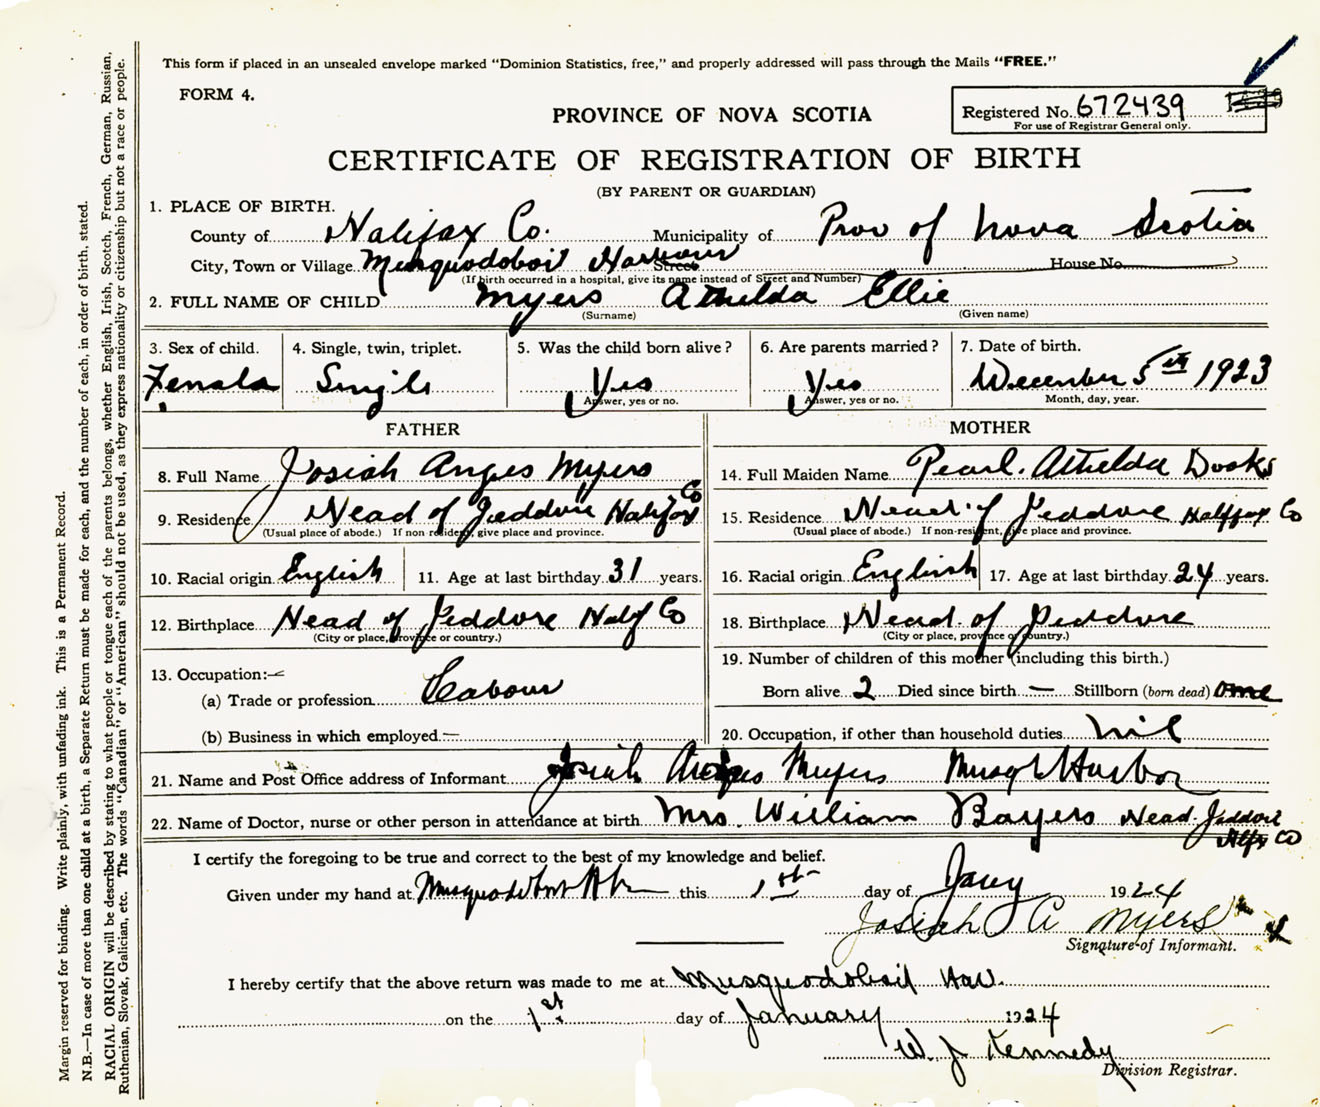 This form if placed in an unsealed envelope marked “Dominion Statistics, free,” and properly addressed will pass through the Mails “FREE.”
FORM 4.
PROVINCE OF NOVA SCOTIA
Registered No. 672439
For use of Registrar General only.
CERTIFICATE OF REGISTRATION OF BIRTH
(BY PARENT OR GUARDIAN)
1. PLACE OF BIRTH.
County of Halifax Co. Municipality of Prov of Nova Scotia
City, Town or Village Musquodoboit Harbour Street House No.
(If birth occurred in a hospital, give its name instead of Street and Number)
2. FULL NAME OF CHILD Myers Athelda Ellie
(Surname) (Given name)
3. Sex of child. 4. Single, twin, triplet. 5. Was the child born alive? 6. Are parents married? 7. Date of birth.
Female Single Yes Yes December 5th 1923
Answer, yes or no. Answer, yes or no. Month, day, year.
FATHER
8. Full Name Josiah Anges Myers
9. Residence Head of Jeddore Halifax Co
(Usual place of abode.) If non resident, give place and province.
10. Racial origin English 11. Age at last birthday 31 years.
12. Birthplace Head of Jeddore Half Co
(City or place, province or country.)
13. Occupation:—
(a) Trade or profession Labour
(b) Business in which employed —
MOTHER
14. Full Maiden Name Pearl. Athelda Dooks
15. Residence Head of Jeddore Halffax Co
(Usual place of abode.) If non-resident, give place and province.
16. Racial origin English 17. Age at last birthday 24 years.
18. Birthplace Head of Jeddore
(City or place, province or country.)
19. Number of children of this mother (including this birth.)
Born alive 2 Died since birth — Stillborn (born dead) one
20. Occupation, if other than household duties nil
21. Name and Post Office address of Informant Josiah Myers Musqt Harbor
22. Name of Doctor, nurse or other person in attendance at birth Mrs. William Bayers Head Jeddore
Hlfx Co
I certify the foregoing to be true and correct to the best of my knowledge and belief.
Given under my hand at Musquodoboit Hbr this 1st day of Jany 1924
Josiah A Myers
Signature of Informant.
I hereby certify that the above return was made to me at Musquodoboit Har.
on the 1st day of January 1924
W. J. Kennedy
Division Registrar.
Margin reserved for binding. Write plainly, with unfading ink. This is a Permanent Record.
N.B.—In case of more than one child at a birth, a Separate Return must be made for each, and the number of each, in order of birth, stated.
RACIAL ORIGIN will be described by stating to what people or tongue each of the parents belongs, whether English, Irish, Scotch, French, German, Russian,
Ruthenian, Slovak, Galician, etc. The words “Canadian” or “American” should not be used, as they express nationality or citizenship but not a race or people.